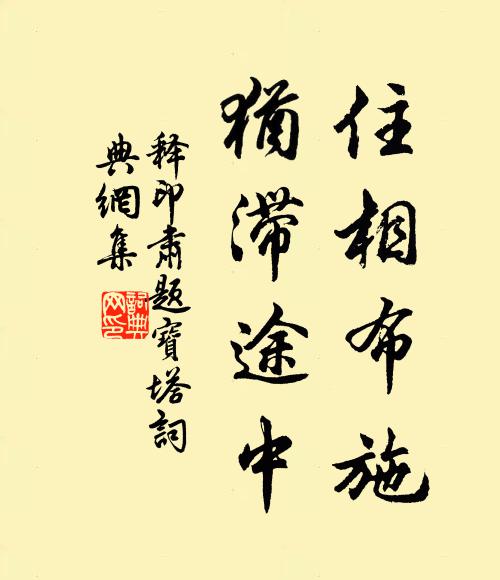 住相布施
猶滯途中
释印肅題寶塔詞
典網集
詞典
网印